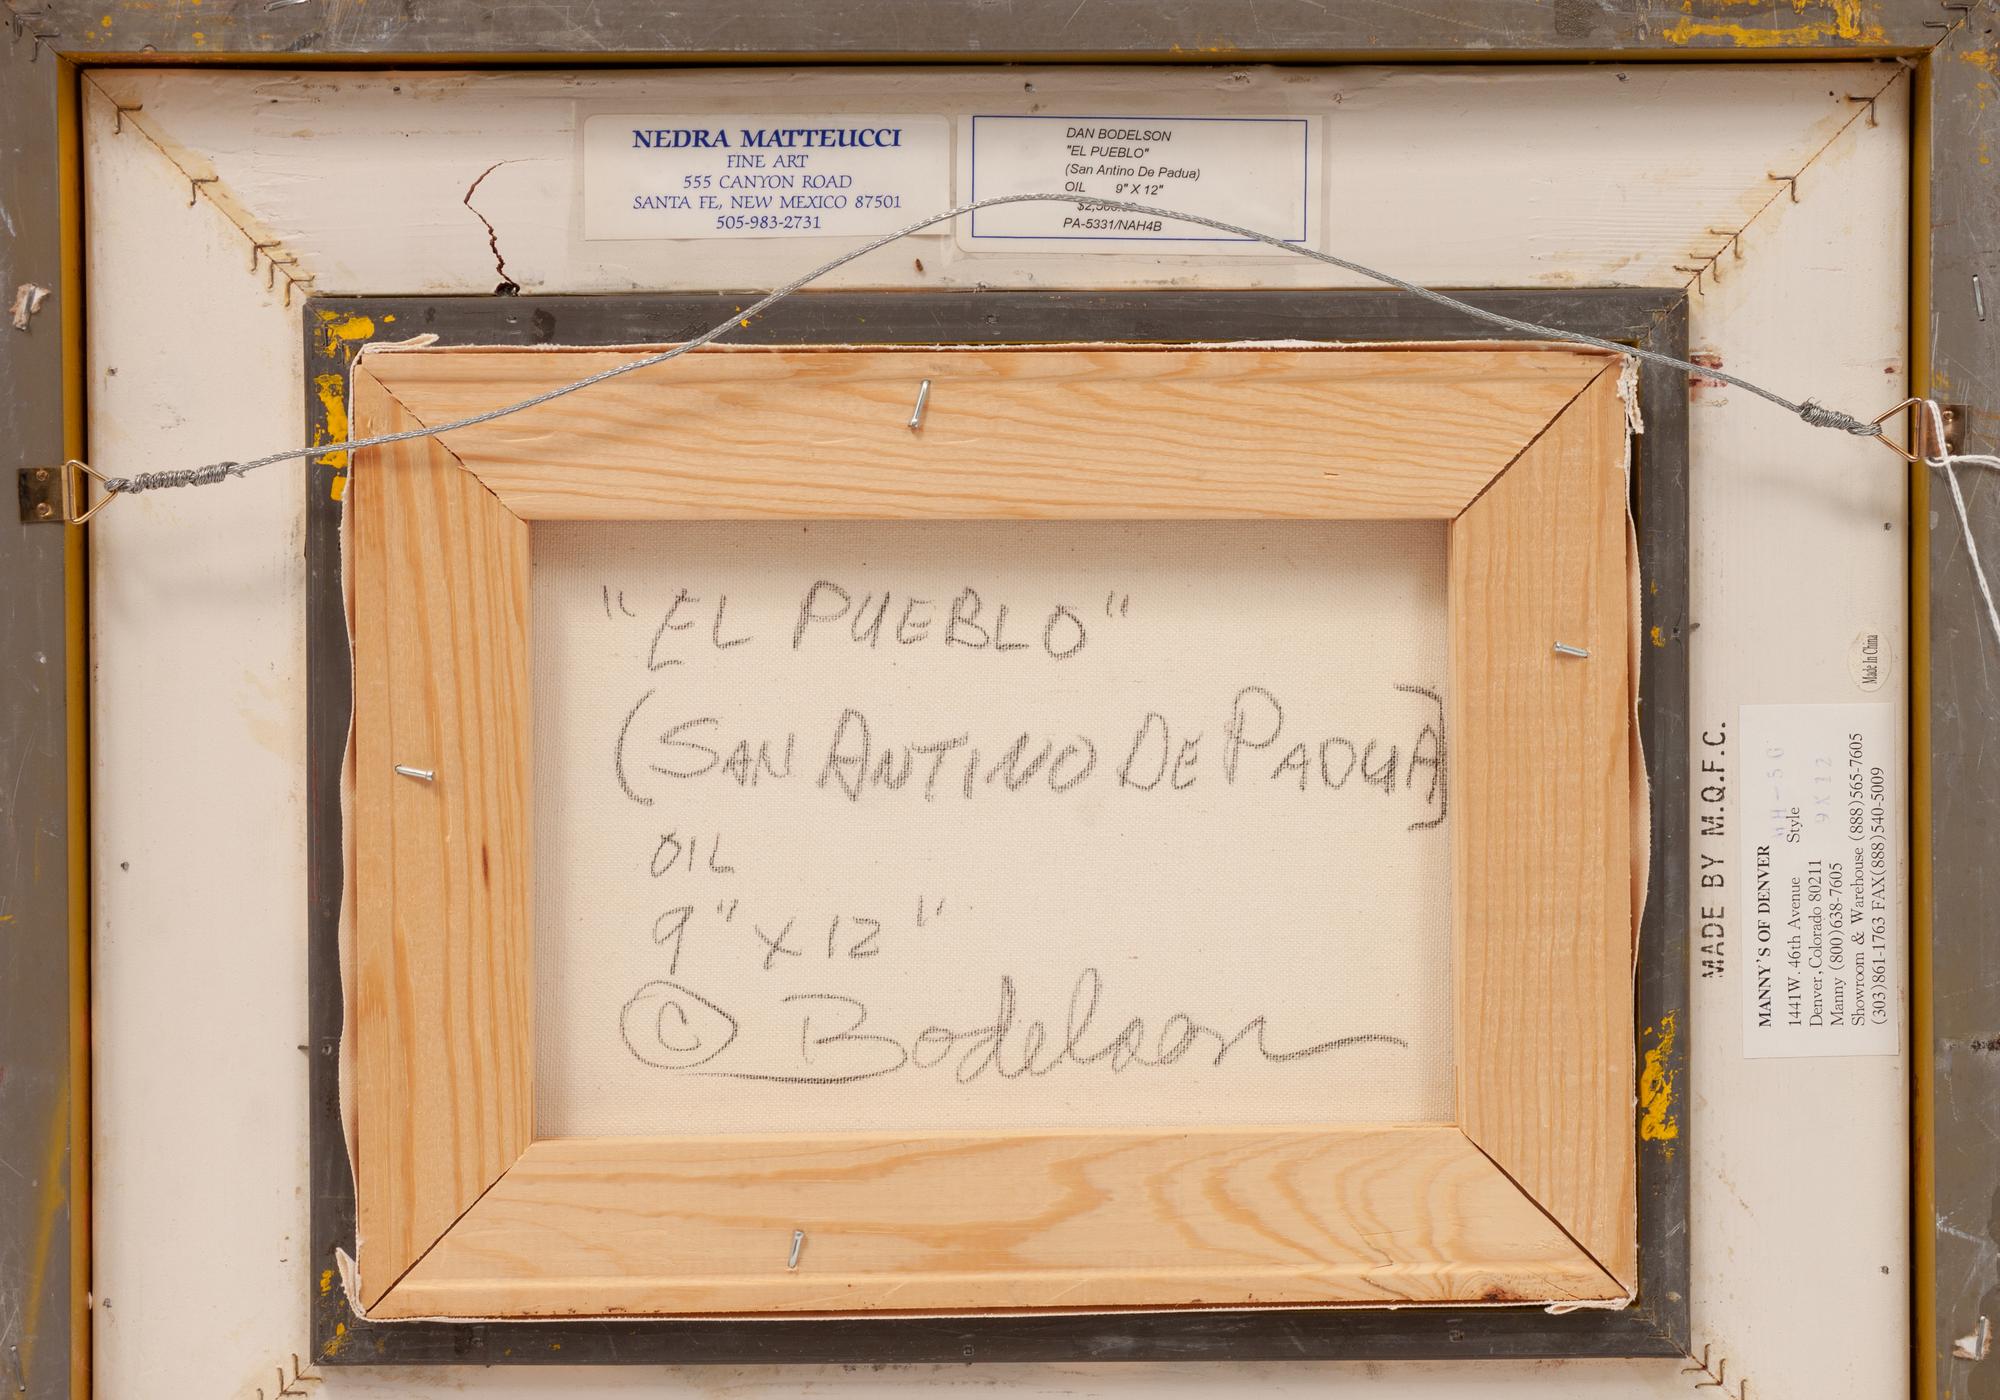 NEDRA MATTEUCCI
FINE ART
555 CANYON ROAD
SANTA FE, NEW MEXICO 87501
505-983-2731
DAN BODELSON
"EL PUEBLO"
(San Antino De Padua)
OIL 9" X 12"
PA-5331/NAH4B
"EL PUEBLO"
(SAN ANTINO DE PADUA)
OIL
9" X 12"
© Bodelson
MADE BY M.Q.F.C.
Made In China
MANNY'S OF DENVER
1441W. 46th Avenue Style
Denver, Colorado 80211 9X12
Manny (800)638-7605
Showroom & Warehouse (888)565-7605
(303)861-1763 FAX(888)540-5009